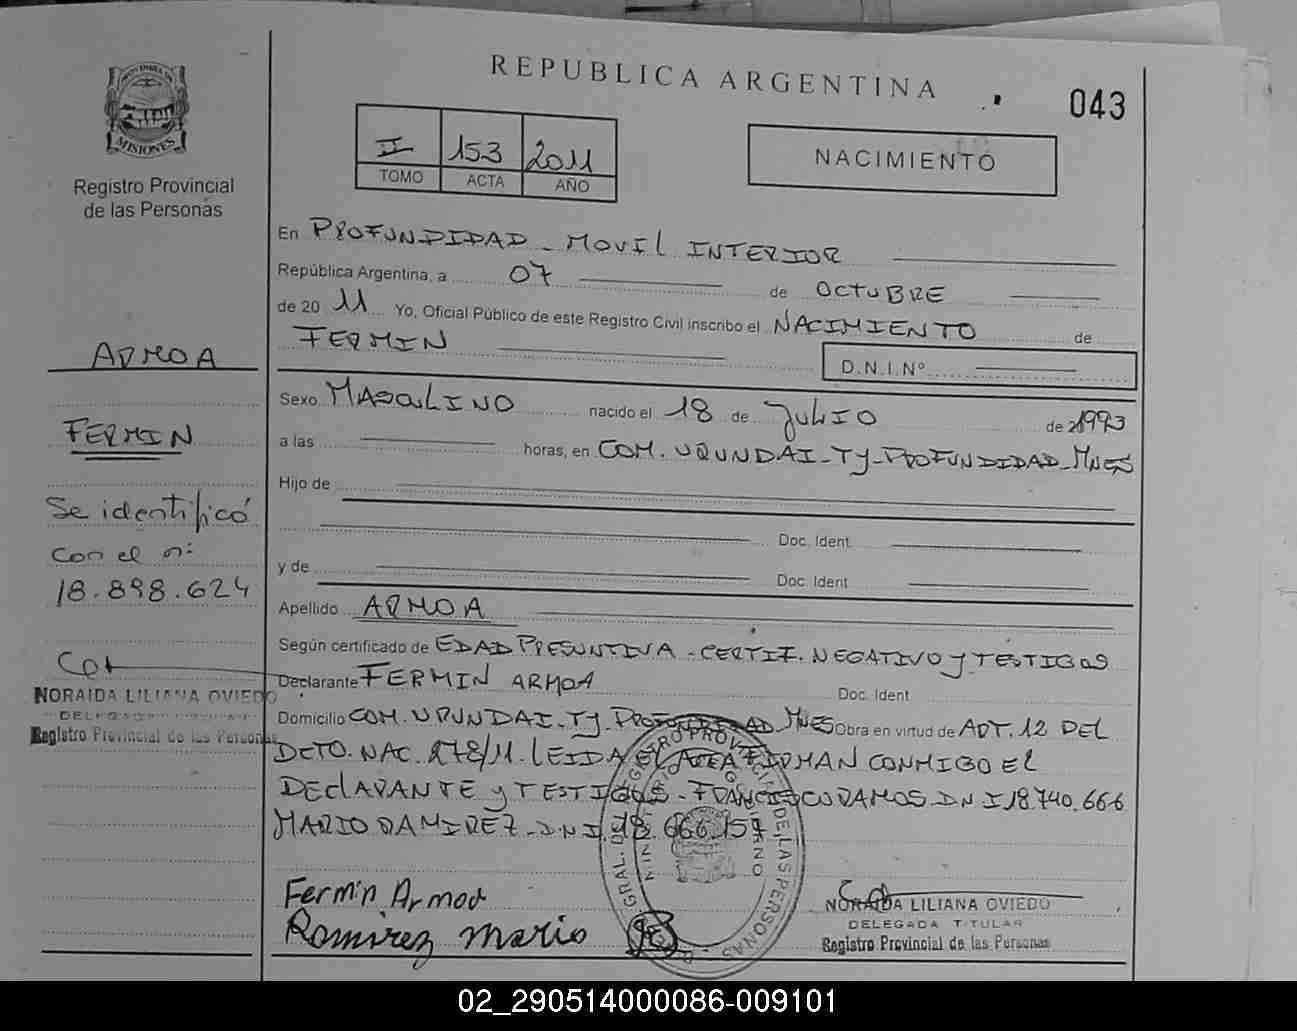 REPUBLICA ARGENTINA
043
PROVINCIA DE
MISIONES
Registro Provincial
de las Personas
II 153 2011
TOMO ACTA AÑO
NACIMIENTO
En PROFUNDIDAD - MOVIL INTERIOR
República Argentina, a 07 de OCTUBRE
de 2011 Yo, Oficial Público de este Registro Civil inscribo el NACIMIENTO de
FERMIN
D.N.I.Nº
Sexo MASCULINO nacido el 18 de JULIO de 1993
a las horas, en COM. URUNDAI-TY-PROFUNDIDAD-MNES
Hijo de
Doc. Ident.
y de
Doc. Ident.
Apellido ARMOA
Según certificado de EDAD PRESUNTIVA - CERTIF. NEGATIVO y TESTIGOS
Declarante FERMIN ARMOA Doc. Ident.
Domicilio COM. URUNDAI-TY PROFUNDIDAD MNES Obra en virtud de ART. 12 DEL
DCTO. NAC. 278/11. LEIDA EL ACTA FIRMAN CONMIGO El
DEClARANTE y TESTIGOS - FRANCISCO RAMOS DNI 18.740.666
MARIO RAMIREZ - DNI. 18.666.157
Fermin Armoa
Ramirez Mario
NORAIDA LILIANA OVIEDO
DELEGADA TITULAR
Registro Provincial de las Personas
ARMOA
FERMIN
Se identificó
con el nº:
18.898.624
NORAIDA LILIANA OVIEDO
DELEGADA TITULAR
Registro Provincial de las Personas
02_290514000086-009101